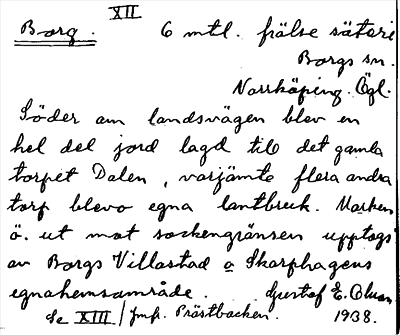 XII
Borg. 6 mtl. frälse säteri
Borgs sn.
Norrköping. Ögl.
Söder om landsvägen blev en
hel del jord lagd till det gamla
torpet Dalen, varjämte flera andra
torp blevo egna lantbruk. Marken
ö. ut mot sockengränsen upptogs
av Borgs Villastad o Skarphagens
egnahemsområde. Gustaf E. Olson
Se XIII / Jmf. Prästbacken. 1938.